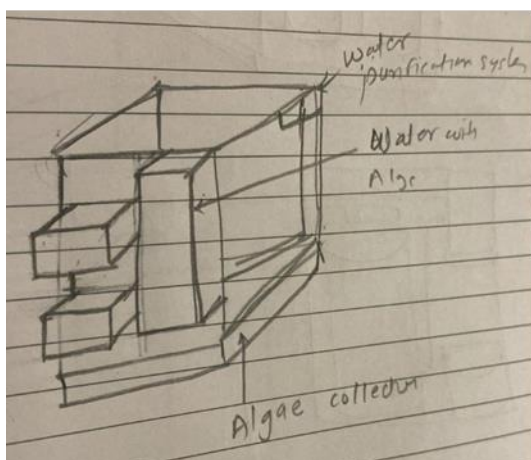 Water
purification system
Water with
Alge
Algae collector